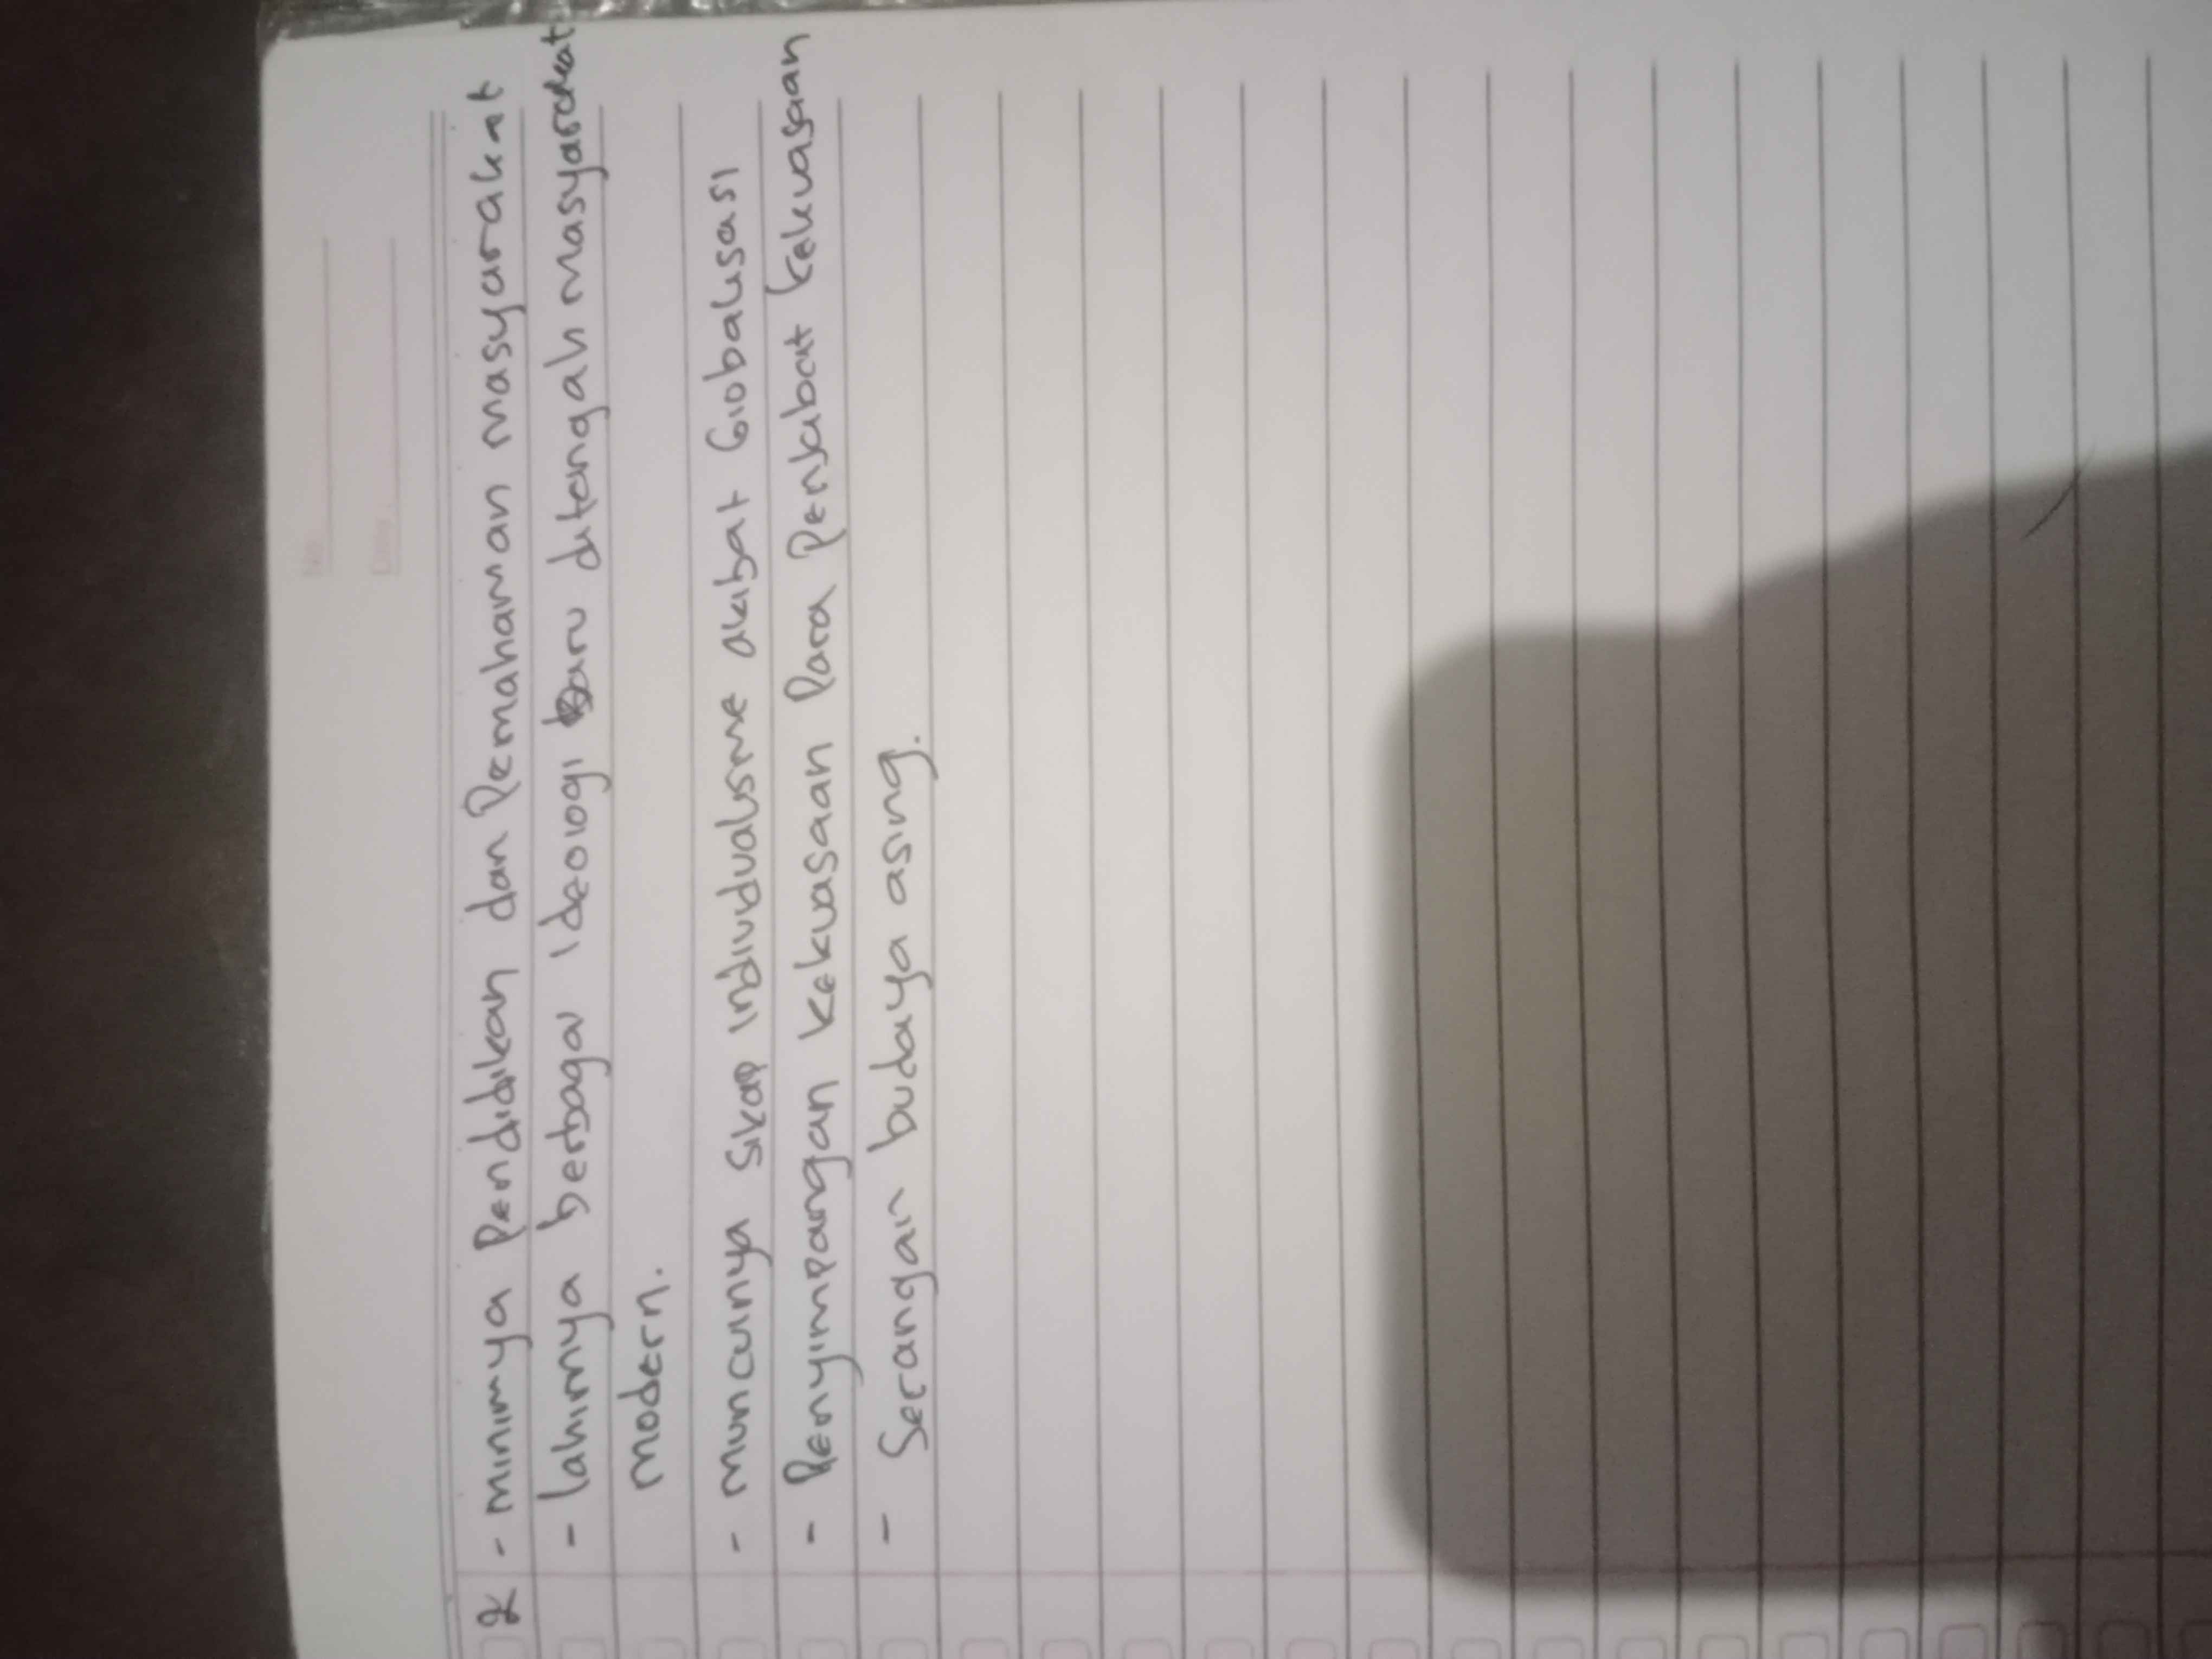 No:
Date:
2 - minimya Pendidikan dan Pemahaman masyarakat
- lahirnya berbagai Ideologi baru ditengah masyarakat
modern.
- muncunya sikap individualisme akibat Globalisasi
- Penyimpangan kekuasaan Para Penjabat kekuasaan
- Serangan budaya asing.